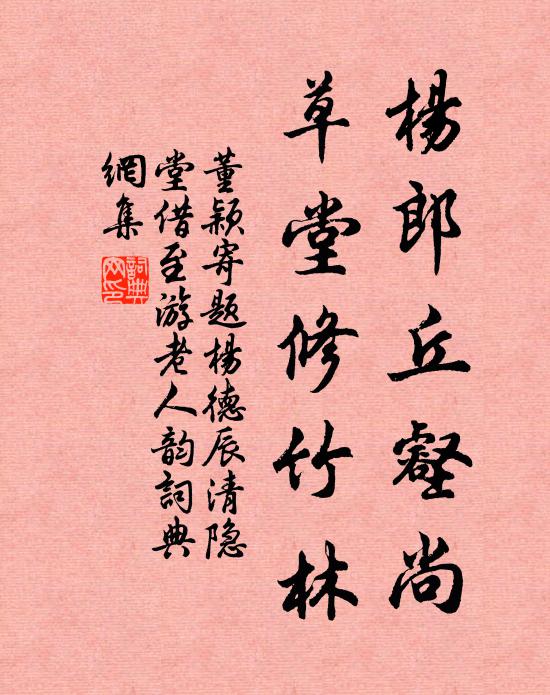 楊郎丘壑尚
草堂修竹林
董颖寄題楊德辰清隐
堂借至游老人韵詞典
網集
詞典網印